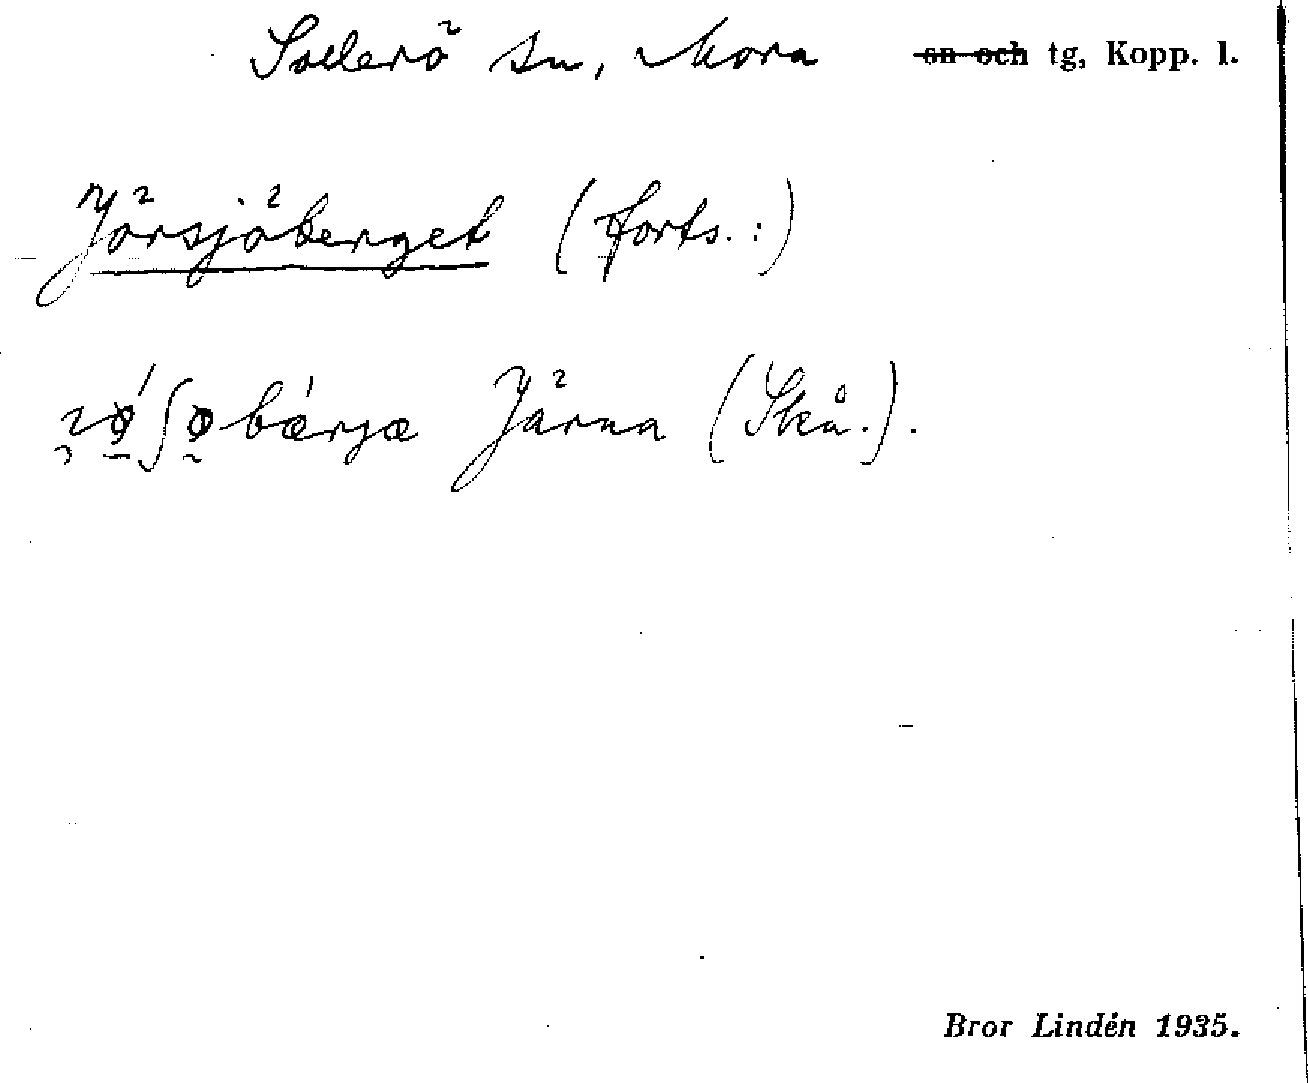 Sollerö sn, Mora ~~sn och~~ tg, Kopp. l.
Jörsjöberget (forts.:)
Järna (Skå.).
Bror Lindén 1935.